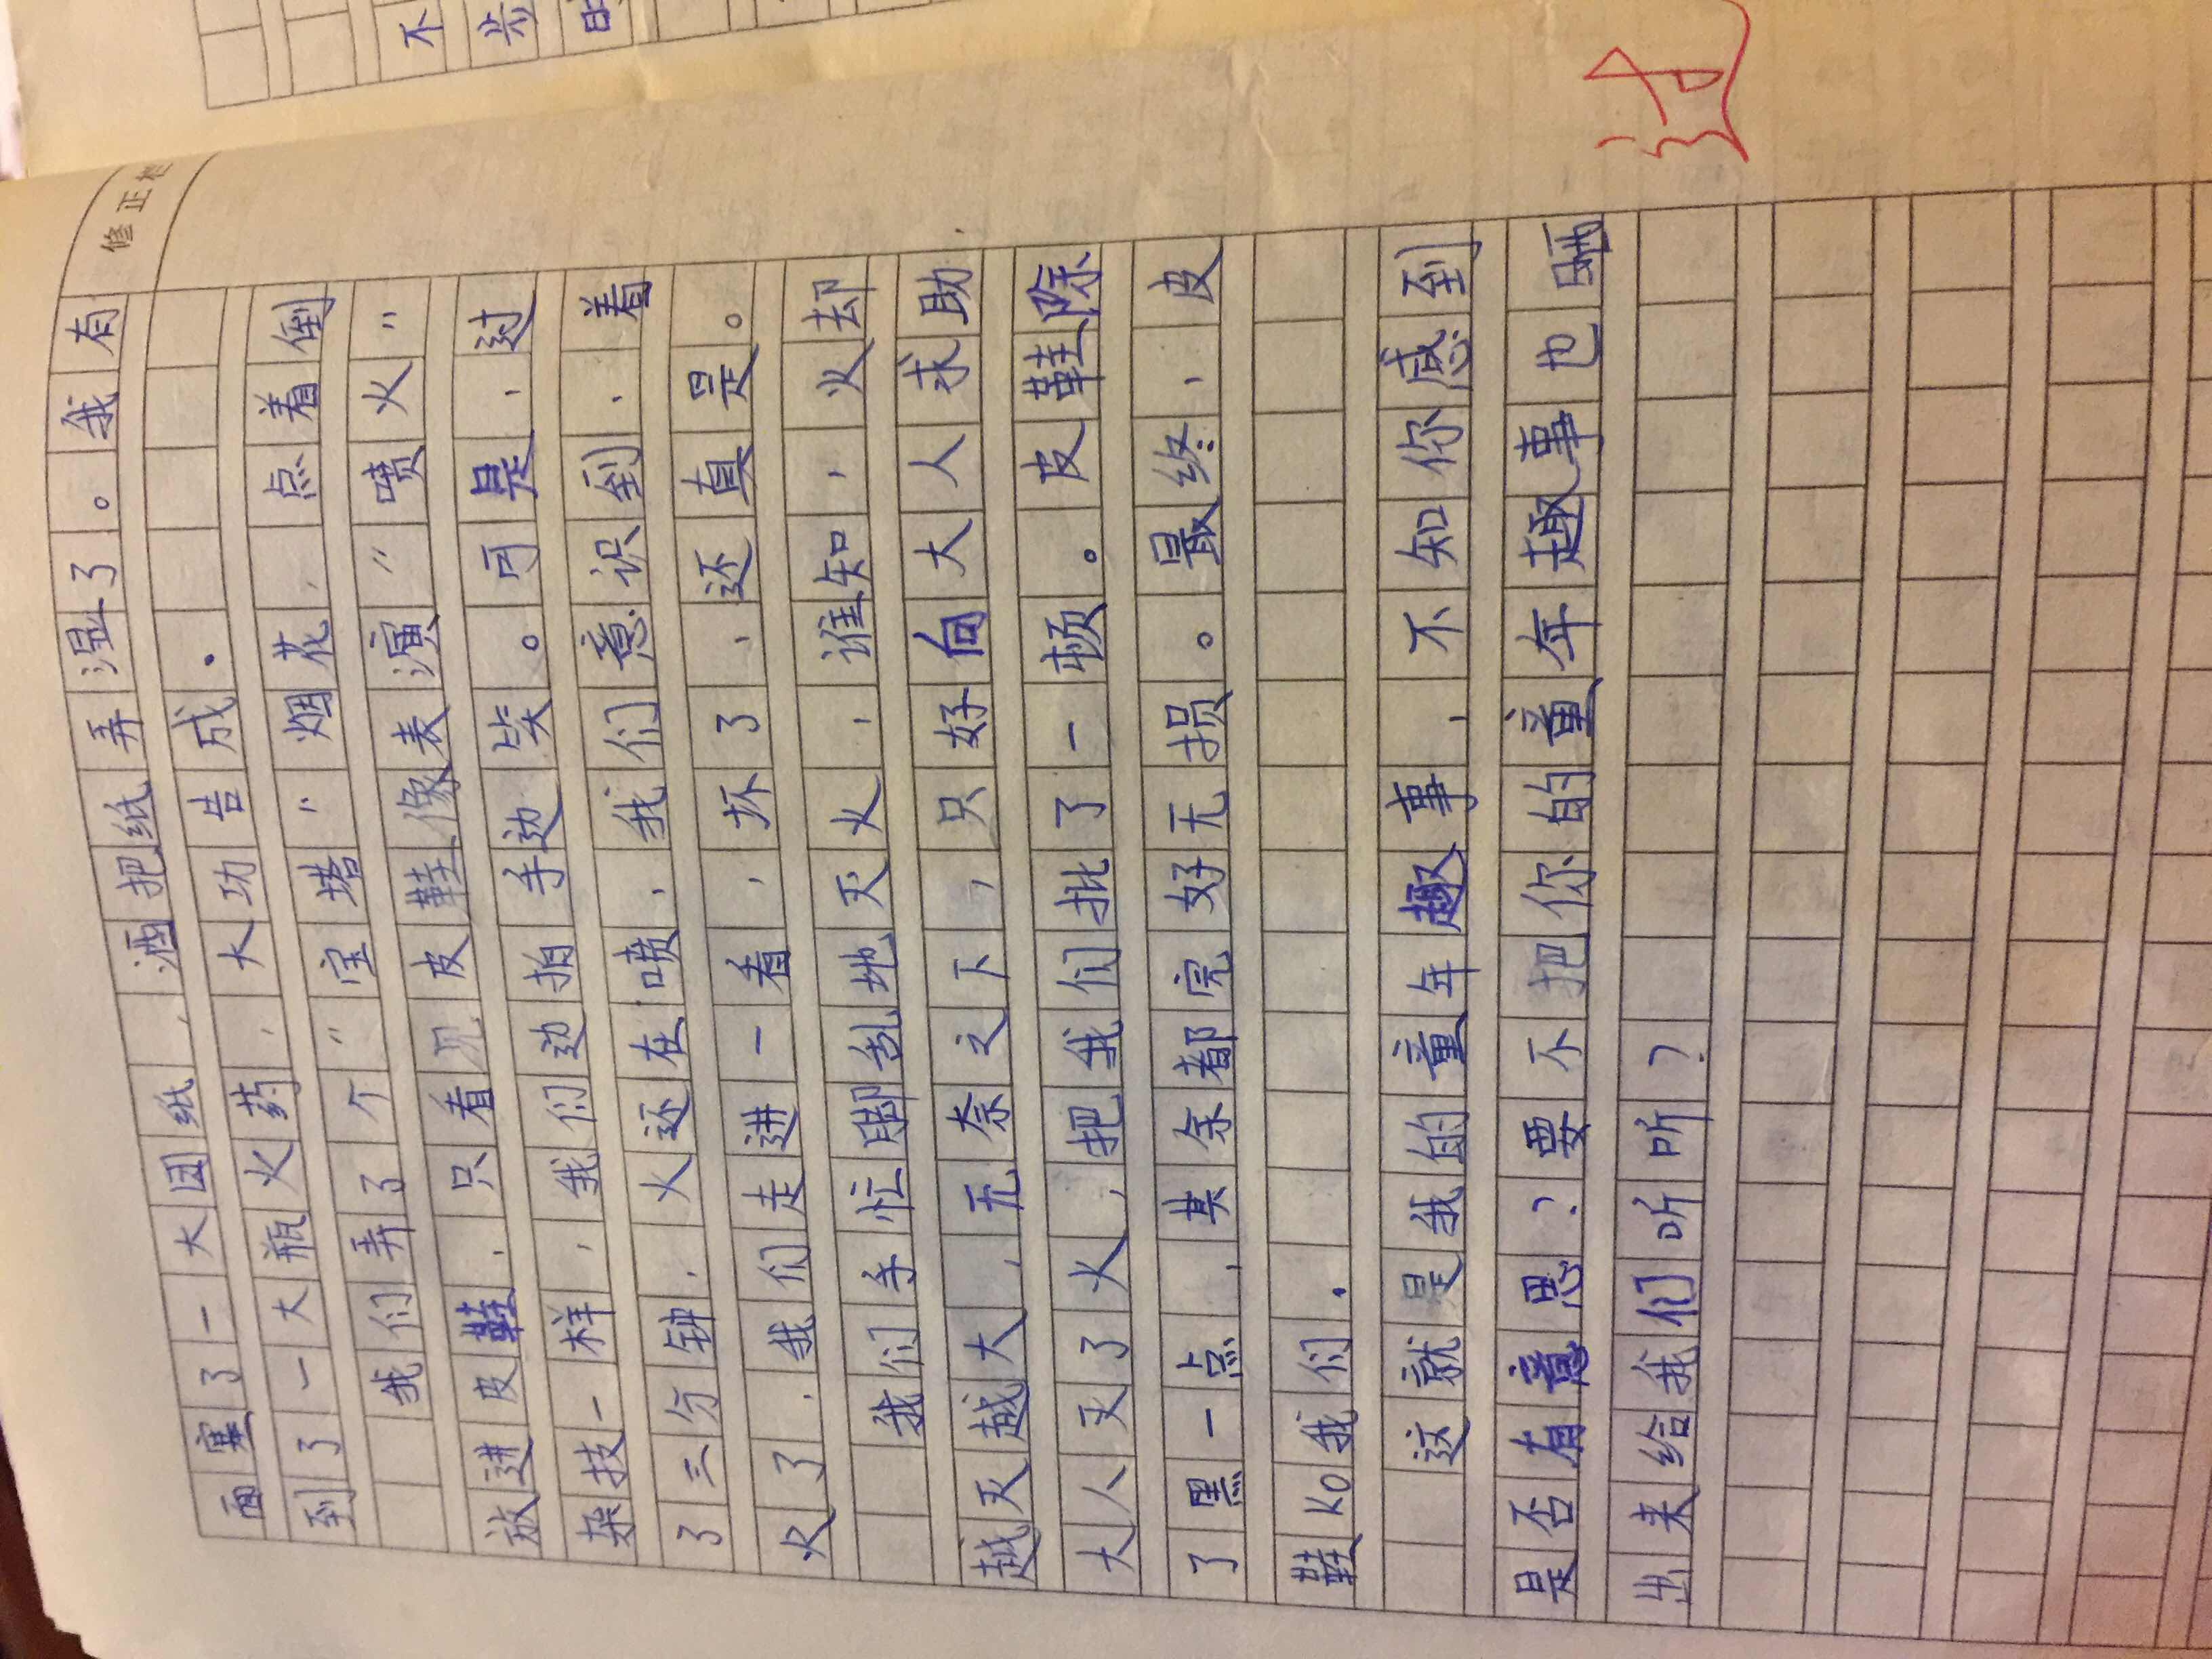 修正栏
面塞了一大团纸，酒把纸弄湿了。我有
到了一大瓶火药，大功告成.
我们弄了个“宝塔”烟花，点着倒
放进皮鞋，只看见皮鞋像表演“喷火”
杂技一样，我们边拍手边笑。可是，过
了三分钟，火还在喷，我们意识到，着
火了，我们走进一看，坏了，还真是。
我们手忙脚乱地灭火，谁知，火却
越灭越大，无奈之下，只好向大人求助
大人灭了火，把我们批了一顿。皮鞋除
了黑一点，其余都完好无损。最终，皮
鞋KO我们.
这就是我的童年趣事，不知你感到
是否有意思？要不把你的童年趣事也晒
出来给我们听听？
不